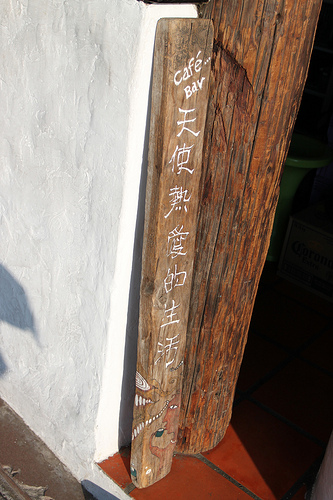 Café...
Bar
天使熱愛的生活
Corona